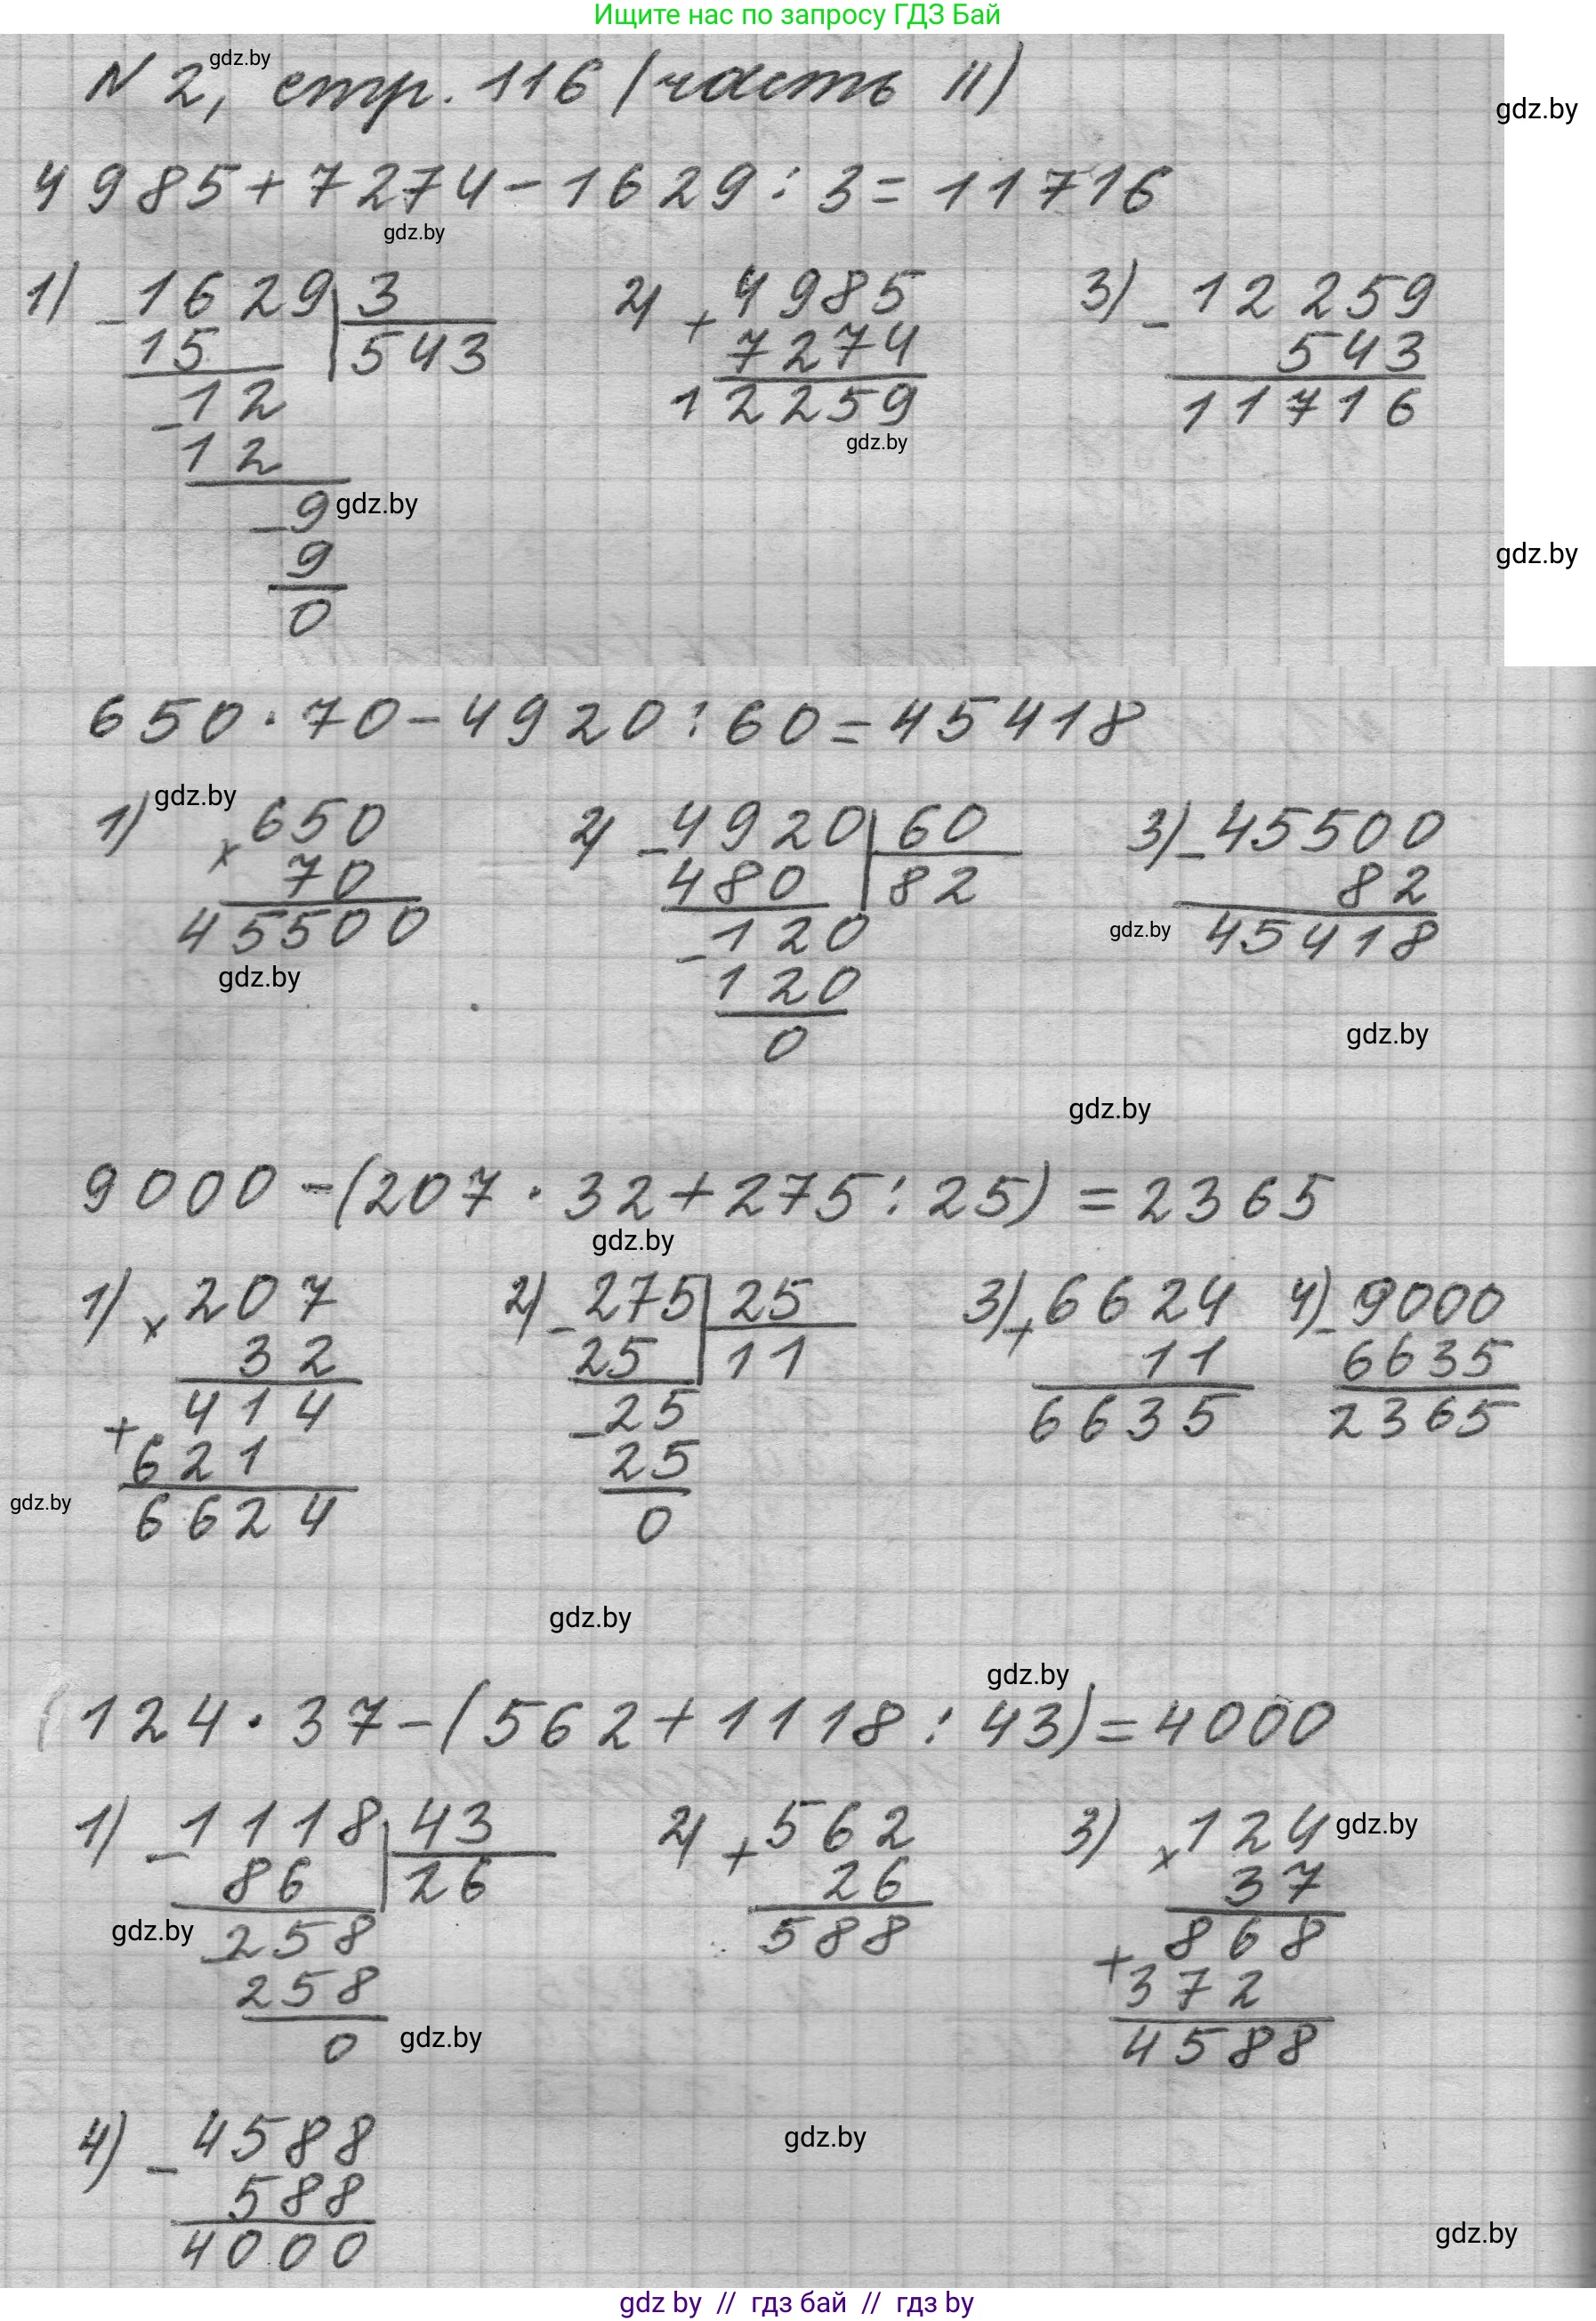 Ищите нас по запросу ГДЗ Бай
gdz.by
N 2, стр. 116 (часть II)
gdz.by
4985+7274-1629:3=11716
gdz.by
1) -1629 3 2) +4985 3) -12259
15 543 7274 543
-12 12259 11716
gdz.by
12
-9 gdz.by
9
gdz.by
0
650·70-4920:60=45418
gdz.by
1) ×650 2) -4920 60 3) -45500
70 480 82 82
45500 -120 gdz.by 45418
gdz.by
120
0
gdz.by
gdz.by
9000-(207·32+275:25)=2365
gdz.by
1) ×207 2) -275 25 3) +6624 4) -9000
32 25 11 11 6635
+414 -25 6635 2365
621 25
gdz.by
6624 0
gdz.by
gdz.by
(124·37-(562+1118:43)=4000
1) -1118 43 2) +562 3) ×124 gdz.by
86 26 26 37
gdz.by -258 588 +868
258 372
0 gdz.by 4588
4) -4588
gdz.by
588
4000
gdz.by
gdz by // гдз бай // гдз by